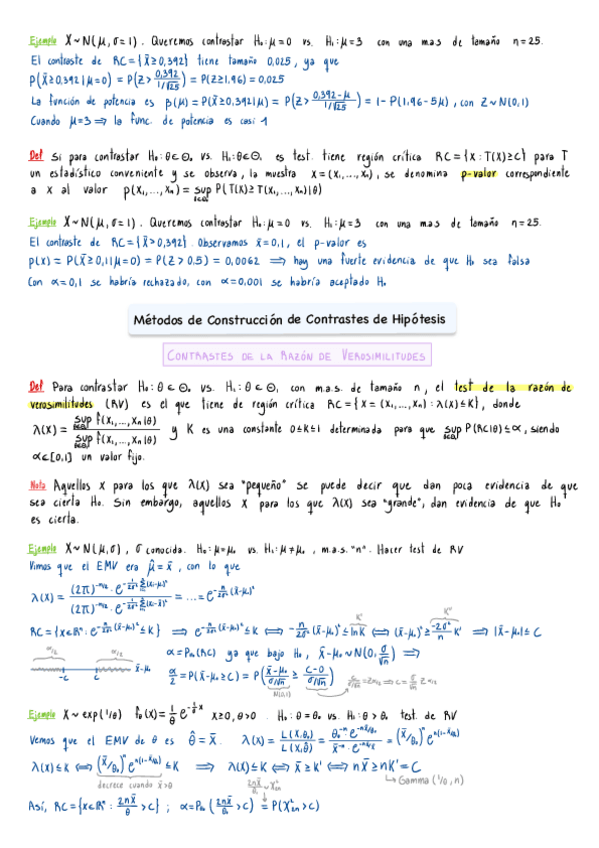 Ejemplo X~N(μ,σ=1). Queremos contrastar H₀:μ=0 vs. H₁:μ=3 con una m.a.s de tamaño n=25.
El contraste de RC={x̄≥0,392} tiene tamaño 0,025, ya que
P(x̄≥0,392|μ=0) = P(Z> 0,392/(1/√25)) = P(Z≥1,96) = 0,025
La función de potencia es β(μ) = P(x̄≥0,392|μ) = P(Z> (0,392-μ)/(1/√25)) = 1-P(1,96-5μ), con Z~N(0,1)
Cuando μ=3 ⟹ la func. de potencia es casi 1
Def Si para contrastar H₀:θ∈Θ₀ vs. H₁:θ∈Θ₁ es test. tiene región crítica RC={x:T(x)≥c} para T
un estadístico conveniente y se observa, la muestra x=(x₁,...,xₙ), se denomina p-valor correspondiente
a x al valor p(x₁,...,xₙ) = sup P(T(X)≥T(x₁,...,xₙ)|θ)
Ejemplo X~N(μ,σ=1). Queremos contrastar H₀:μ=0 vs. H₁:μ=3 con una m.a.s de tamaño n=25.
El contraste de RC={x̄>0,392}. Observamos x̄=0,1, el p-valor es
p(x) = P(x̄≥0,1|μ=0) = P(Z>0.5) = 0,0062 ⟹ hay una fuerte evidencia de que H₀ sea falsa
Con α=0,1 se habría rechazado, con α=0.001 se habría aceptado H₀
Métodos de Construcción de Contrastes de Hipótesis
CONTRASTES DE LA RAZÓN DE VEROSIMILITUDES
Def Para contrastar H₀:θ∈Θ₀ vs. H₁:θ∈Θ₁ con m.a.s. de tamaño n, el test de la razón de
verosimilitudes (RV) es el que tiene de región crítica RC={x=(x₁,...,xₙ):λ(x)≤K}, donde
λ(x) = sup f(x₁,...,xₙ|θ) / sup f(x₁,...,xₙ|θ) y K es una constante 0≤K≤1 determinada para que sup P(RC|θ)≤α, siendo
α∈[0,1] un valor fijo.
Nota Aquellos x para los que λ(x) sea "pequeño" se puede decir que dan poca evidencia de que
sea cierta H₀. Sin embargo, aquellos x para los que λ(x) sea "grande", dan evidencia de que H₀
es cierta.
Ejemplo X~N(μ,σ), σ conocida. H₀:μ=μ₀ vs. H₁:μ≠μ₀, m.a.s. "n". Hacer test de RV
Vimos que el EMV era μ̂=x̄, con lo que
λ(x) = (2π)^(-n/2)·e^(-1/(2σ²) Σ(xᵢ-μ₀)²) / (2π)^(-n/2)·e^(-1/(2σ²) Σ(xᵢ-x̄)²) = ... = e^(-n/(2σ²)(x̄-μ₀)²)
RC={x∈ℝⁿ: e^(-n/(2σ²)(x̄-μ₀)²) ≤K} ⟹ e^(-n/(2σ²)(x̄-μ₀)²) ≤K ⟺ -n/(2σ²)(x̄-μ₀)² ≤ lnK ⟺ (x̄-μ₀)² ≥ -2σ²/n K' ⟹ |x̄-μ₀|≤C
α/2 α/2 -c c x̄-μ₀
α=P_μ₀(RC) ya que bajo H₀, x̄-μ₀~N(0, σ/√n) ⟹
α/2 = P(x̄-μ₀≥c) = P((x̄-μ₀)/(σ/√n) ≥ (c-0)/(σ/√n))
N(0,1)
Ejemplo X~exp(1/θ) f_θ(x)=1/θ e^(-1/θ x) x≥0, θ>0. H₀:θ=θ₀ vs. H₁:θ>θ₀ test. de RV
Vemos que el EMV de θ es θ̂=X̄. λ(x) = L(x,θ₀)/L(x,θ̂) = θ₀⁻ⁿ e^(-nx̄/θ₀) / x̄⁻ⁿ·e^(-nx̄/x̄) = (x̄/θ₀)ⁿ e^(n(1-x̄/θ₀))
λ(x)≤K ⟺ (x̄/θ₀)ⁿ e^(n(1-x̄/θ₀)) ≤K ⟹ λ(x)≤K ⟺ x̄≥K' ⟺ nx̄≥nK'=C
decrece cuando x̄>θ
Gamma(1/θ,n)
2nx̄/θ₀ ~χ²₂ₙ
Así, RC={x∈ℝⁿ: 2nx̄/θ >c} ; α=P_θ₀(2nx̄/θ₀ >c) = P(χ²₂ₙ>c)